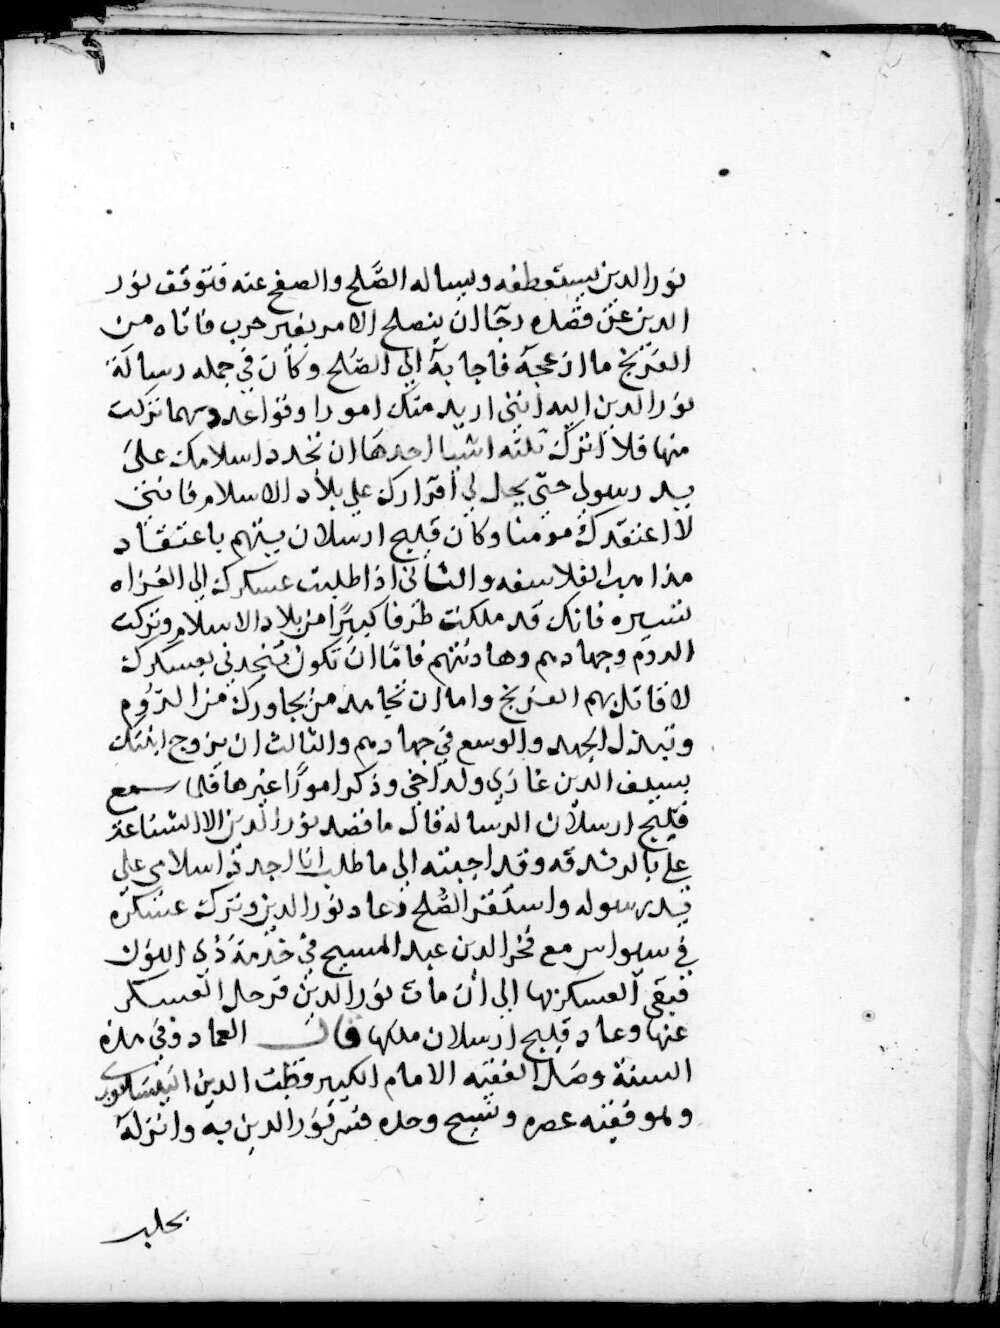 نور الدين يستعطفه ويساله الصلح والصفح عنه فتوقف نور
الدين عن قصده رجآ ان ينصلح الامر بغير حرب فاتاه من
الفرنج ما ازعجه فاجابه الي الصلح وكان في جمله رسالة
نور الدين اليه انني اريد منك امورا وقواعد ومهما تركت
منها فلا اترك ثلثه اشيا احدها ان تجدد اسلامك على
يد رسولي حتي يحل لي اقرارك علي بلاد الاسلام فانني
لا اعتقدك مومنا وكان قليج ارسلان يتهم باعتقاد
مذاهب الفلاسفه والثاني اذا طلبت عسكرك الي الغزاه
تسيره فانك قد ملكت طرفا كبيرا من بلاد الاسلام وتركت
الروم وجهادهم وهادنتهم فامّا ان تكون تنجدني بعسكرك
لاقاتل بهم الفرنج واما ان تجاهد من يجاورك من الروم
وتبذل الجهد والوسع في جهادهم والثالث ان تزوج ابنتك
بسيف الدين غازي ولد اخي وذكر امورًا غيرها فلما سمع
قليج ارسلان الرساله قال ما قصد نور الدين الا الشناعة
علي بالزندقه وقد اجبته الى ما طلب انا اجدد اسلامي على
يد رسوله واستقر الصلح وعاد نور الدين وترك عسكره
في سيواس مع فخر الدين عبد المسيح في خدمة ذي النون
فبقي العسكر بها الي ان مات نور الدين فرحل العسكر
عنها وعاد قليج ارسلان ملكها قال العماد وفي هذه
السنة وصل الفقيه الامام الكبير قطب الدين النيسابوري
وهو فقيه عصره ونسيج وحده فسر نور الدين به وانزله
بحلب